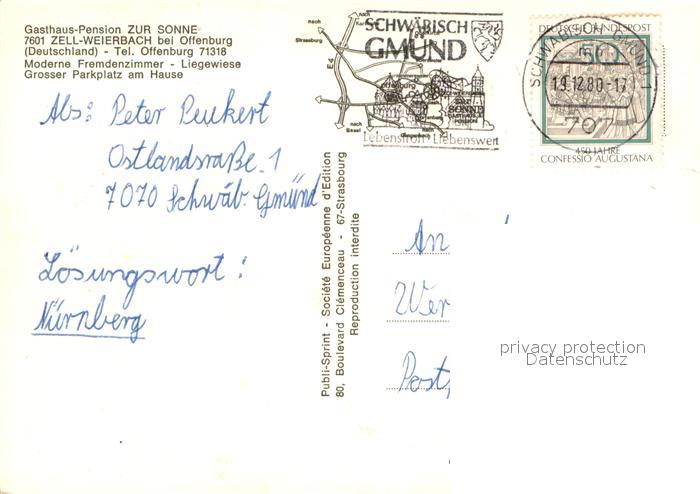 Gasthaus-Pension ZUR SONNE
7601 ZELL-WEIERBACH bei Offenburg
(Deutschland) - Tel. Offenburg 71318
Moderne Fremdenzimmer - Liegewiese
Grosser Parkplatz am Hause
Abs: Peter Peukert
Ostlandsraße 1
7070 Schwäb. Gmünd
Lösungswort:
Nürnberg
Publi-Sprint - Société Européenne d'Edition
80, Boulevard Clémenceau - 67-Strasbourg
Reproduction interdite
nach
Strasburg
E4
nach
Basel
nach
SCHWÄBISCH
GMÜND
Offenburg
SONNE
Lebensfroh Liebenswert
DEUTSCHE BUNDESPOST
50
450 JAHRE
CONFESSIO AUGUSTANA
SCHWÄBISCH GMÜND 1
19.12.80-17
707
An
Wer
Post
privacy protection
Datenschutz